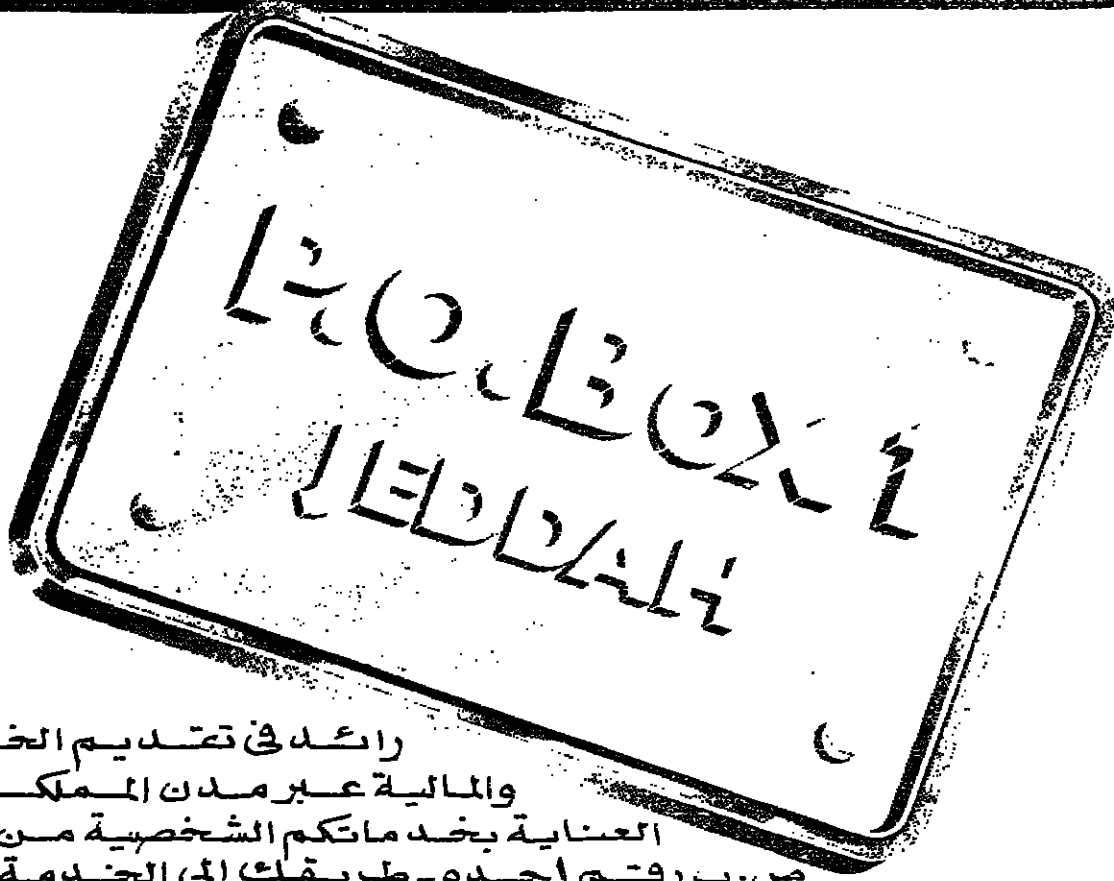 P.O. BOX 1
JEDDAH
رائد في تقديم الخـ
والمالية عبر مدن المملكـ
العناية بخدماتكم الشخصية من
ص.ب رقم ١ جدة - طريقك إلى الخدمة